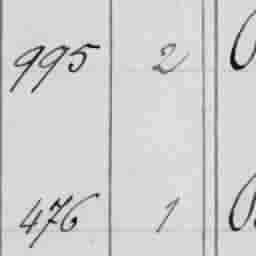 995 2
476 1